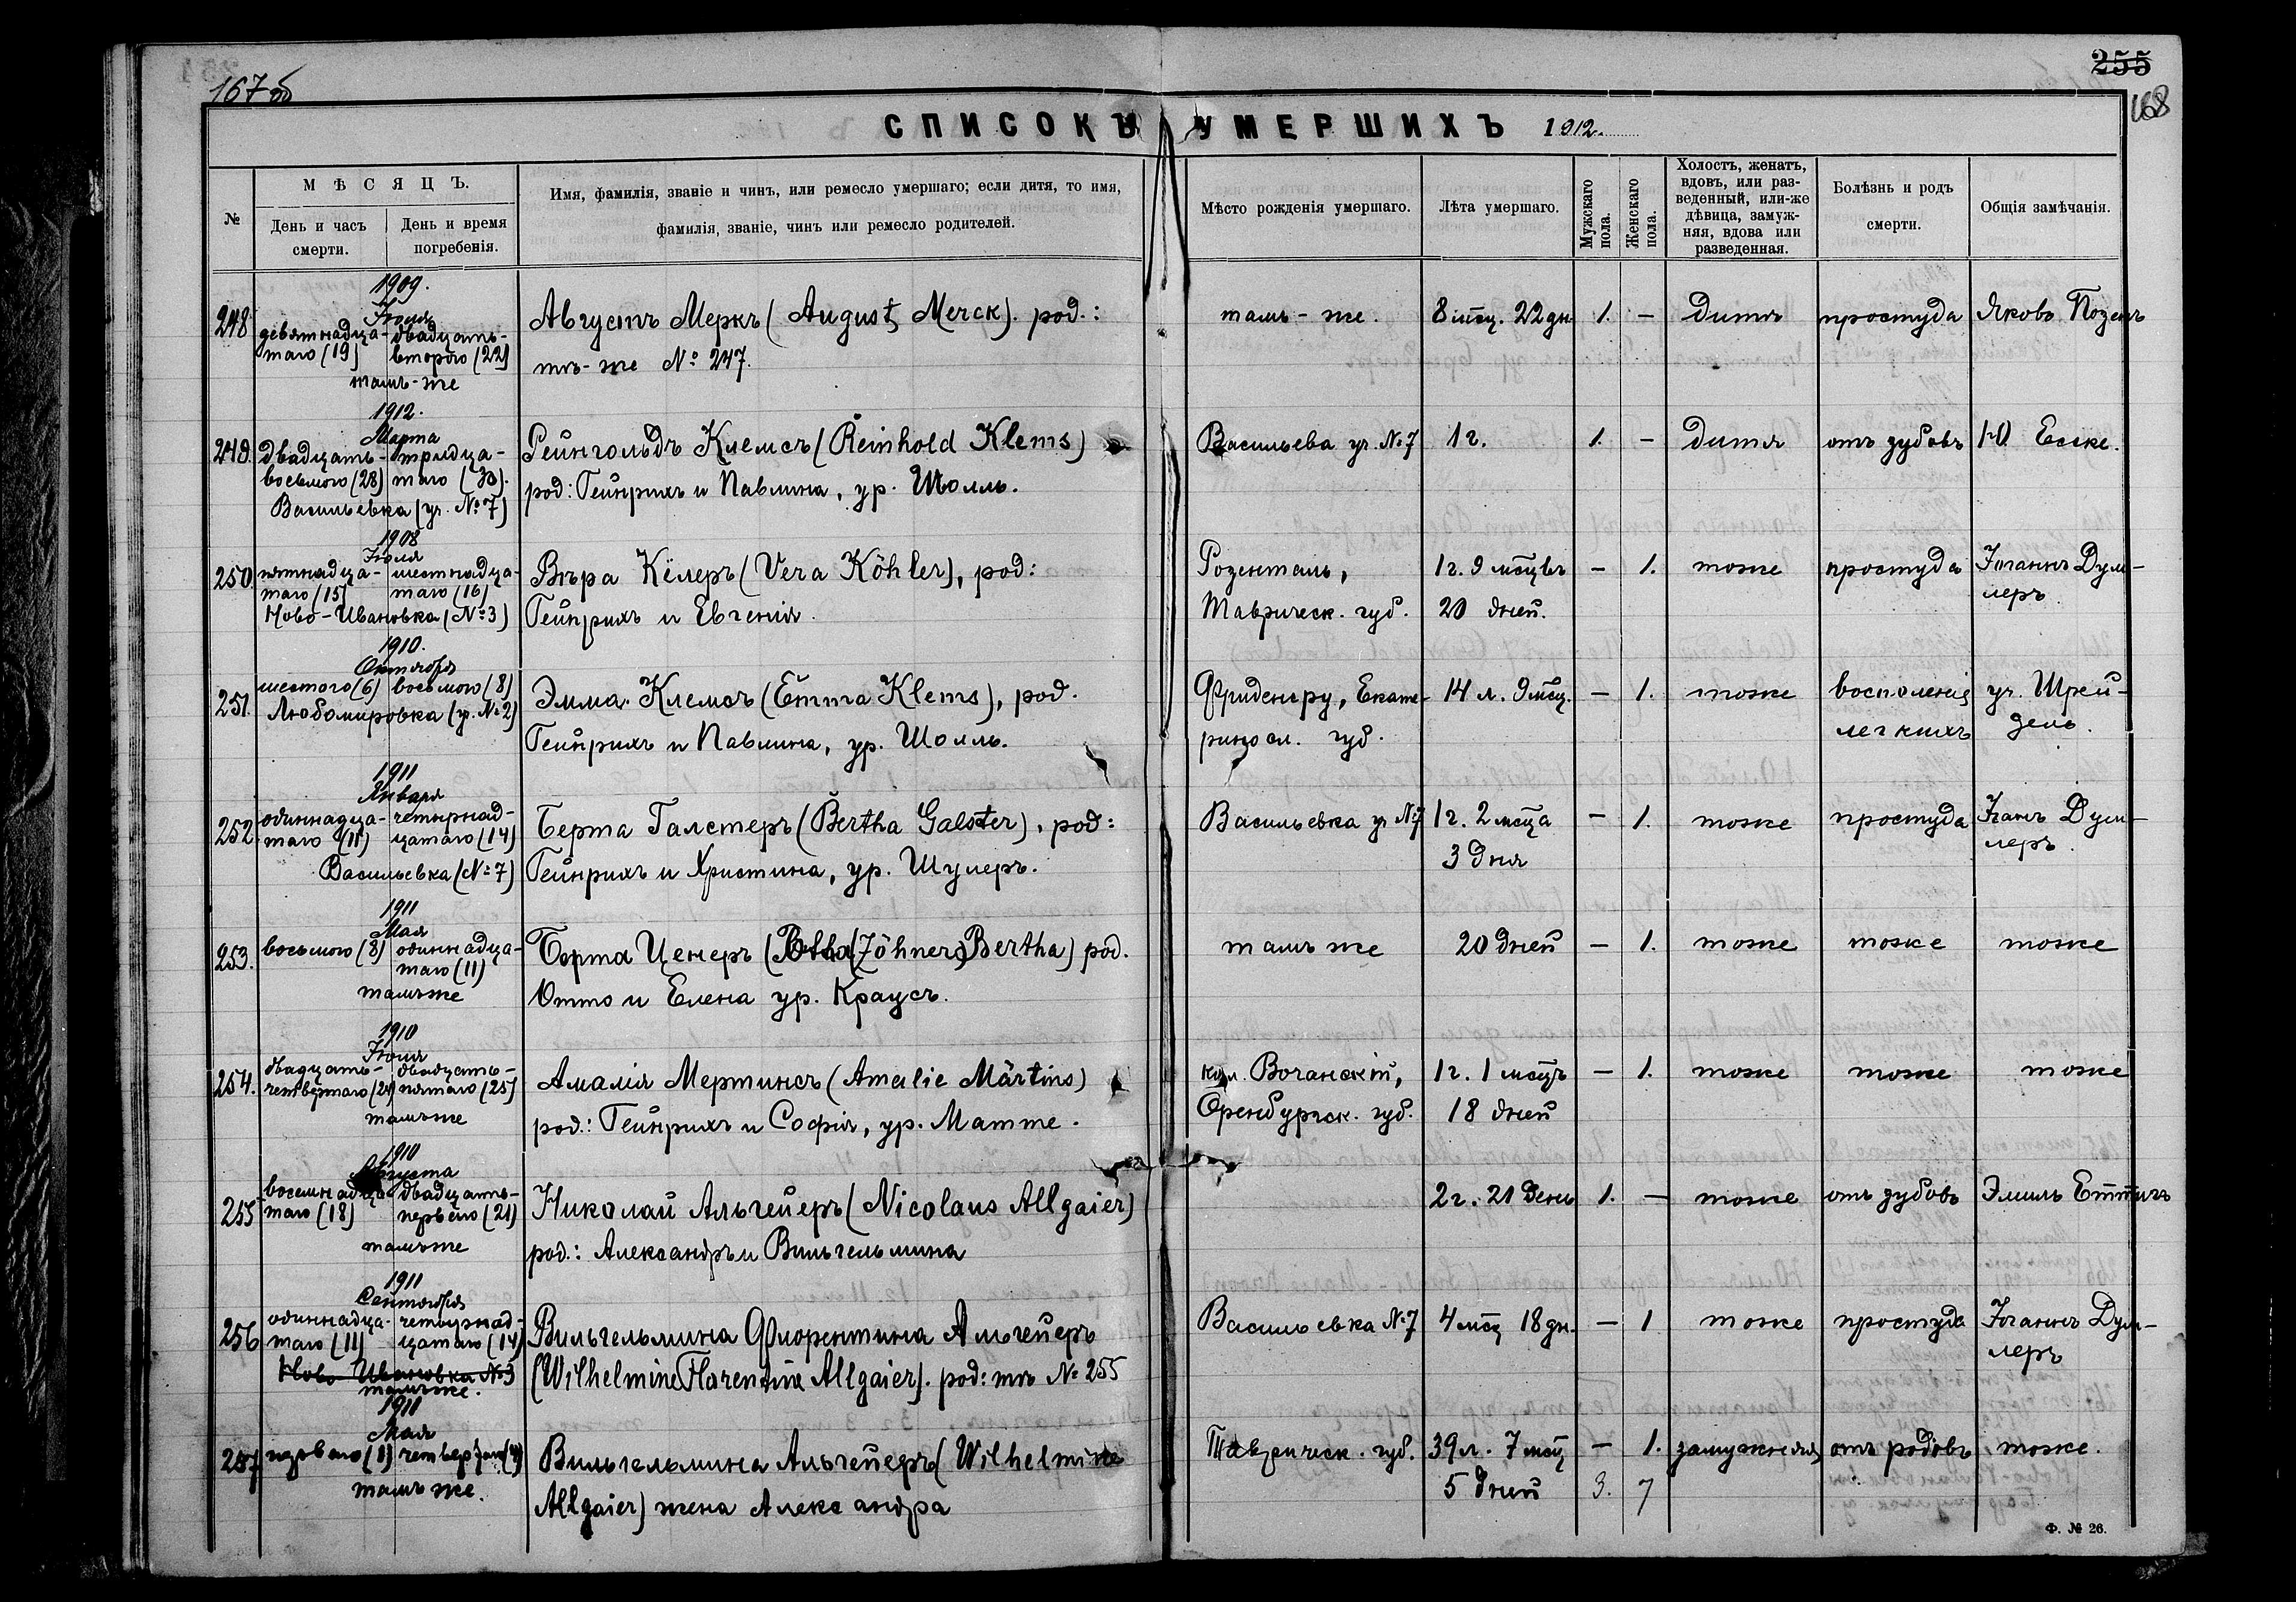 167об
255
168
СПИСОКЪ УМЕРШИХЪ 1912.
№
МѢСЯЦЪ.
День и часъ смерти.
День и время погребенія.
Имя, фамилія, званіе и чинъ, или ремесло умершаго; если дитя, то имя,
фамилія, званіе, чинъ или ремесло родителей.
Мѣсто рожденія умершаго.
Лѣта умершаго.
Мужскаго пола.
Женскаго пола.
Холостъ, женатъ,
вдовъ, или раз-
веденный, или-же
дѣвица, замуж-
няя, вдова или
разведенная.
Болѣзнь и родъ
смерти.
Общія замѣчанія.
1909.
248 девятнадца- двадцать- Августъ Меркъ (August Merck). род.: тамъ-же. 8 мсц. 22 дн. 1. – дитя простуда Яковъ
таго (19) второго (22) тѣ-же № 247.
тамъ-же
1912.
Марта
249. двадцать- тридца- Рейнгольдъ Клемсъ (Reinhold Klems) Васильева уч. №7 1 г. 1. – дитя отъ зубовъ Ю. Esske.
восьмого (28) таго (30). род: Гейнрихъ и Павлина, ур. Шолль.
Васильевка (уч. №7)
1908
Іюля
250 пятнадца- шестнадца- Вѣра Кёлеръ (Vera Köhler), род: Розенталь, 1 г. 9 мсцвъ – 1. тоже простуда Іоганнъ Дум-
таго (15) таго (16) Гейнрихъ и Евгенія. Таврическ. губ. 20 дней. леръ
Ново-Ивановка (№3)
1910.
Октября
251. шестого (6) восьмого (8) Эмма Клемсъ (Emma Klems), род. Екате- 14 л. 9 мсц. – 1. тоже уч. Шрей-
Любомировка (уч. №2) Гейнрихъ и Павлина, ур. Шолль. риносл. губ. легкихъ дель.
1911
Января
252. одиннадца- четырнад- Берта Галстеръ (Bertha Galster), род: Васильевка уч №7 1 г. 2 мсца – 1. тоже простуда Дум-
таго (11) цатаго (14) Гейнрихъ и Христина, ур. Шулеръ. 3 дня леръ
Васильевка (№7)
1911
Мая
253. восьмого (8) одиннадца- Берта Ценеръ (Zöhner, Bertha) род. тамъ же 20 дней – 1. тоже тоже тоже
таго (11) Отто и Елена ур. Краусъ.
тамъ же
1910
254. двадцать- двадцать- Амалія Мертинсъ (Amalie Märtins) кол. 1 г. 1 мсцъ – 1. тоже тоже тоже
четвертаго (24) пятаго (25) род.: Гейнрихъ и Софія, ур. Матте. Оренбургск. губ. 18 дней
тамъ же
1910
Августа
255 восемнадца- двадцать- Николай Альгейеръ (Nicolaus Allgaier) 2 г. 21 день 1. – тоже отъ зубовъ Эмиль
таго (18) перваго (21) род.: Александръ и Вильгельмина
тамъ же
1911
Сентября
256 одиннадца- четырнад- Вильгельмина Флорентина Альгейеръ Васильевка №7 4 мсц 18 дн. – 1 тоже простуда Іоганнъ Дум-
таго (11) цатаго (14) (Wilhelmine Florentine Allgaier). род: тѣ № 255 леръ
Ново-Ивановка №3
тамъ же.
1911
Мая
257 перваго (1) Вильгельмина Альгейеръ (Wilhelmine Таврическ. губ. 39 л. 7 мсц – 1. замужняя отъ родовъ тоже.
тамъ же. Allgaier) жена Александра 5 дней 3. 7
Ф. № 26.